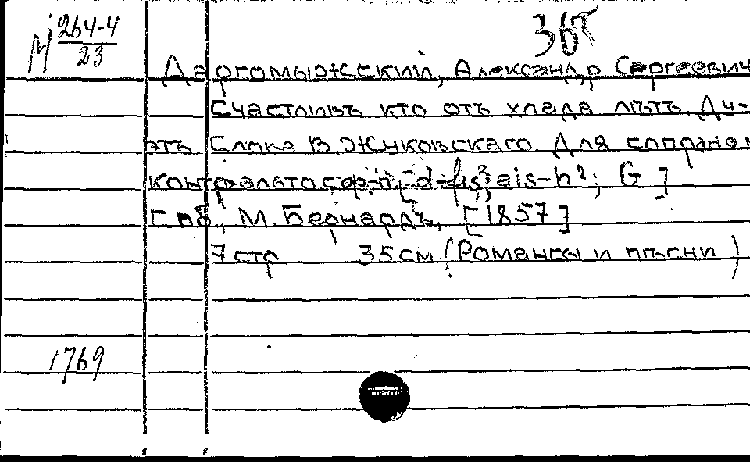 М 264-4
23
36
Даргомыжский, Александр Сергеевич
Счастливъ кто отъ хлада лѣтъ. Ду-
этъ Слова В. Жуковскаго Для сопрано и
контральто с ф-п. eis-h²; G ]
Спб., М. Бернардъ, [1857]
7 стр 35 см (Романсы и пѣсни)
1769